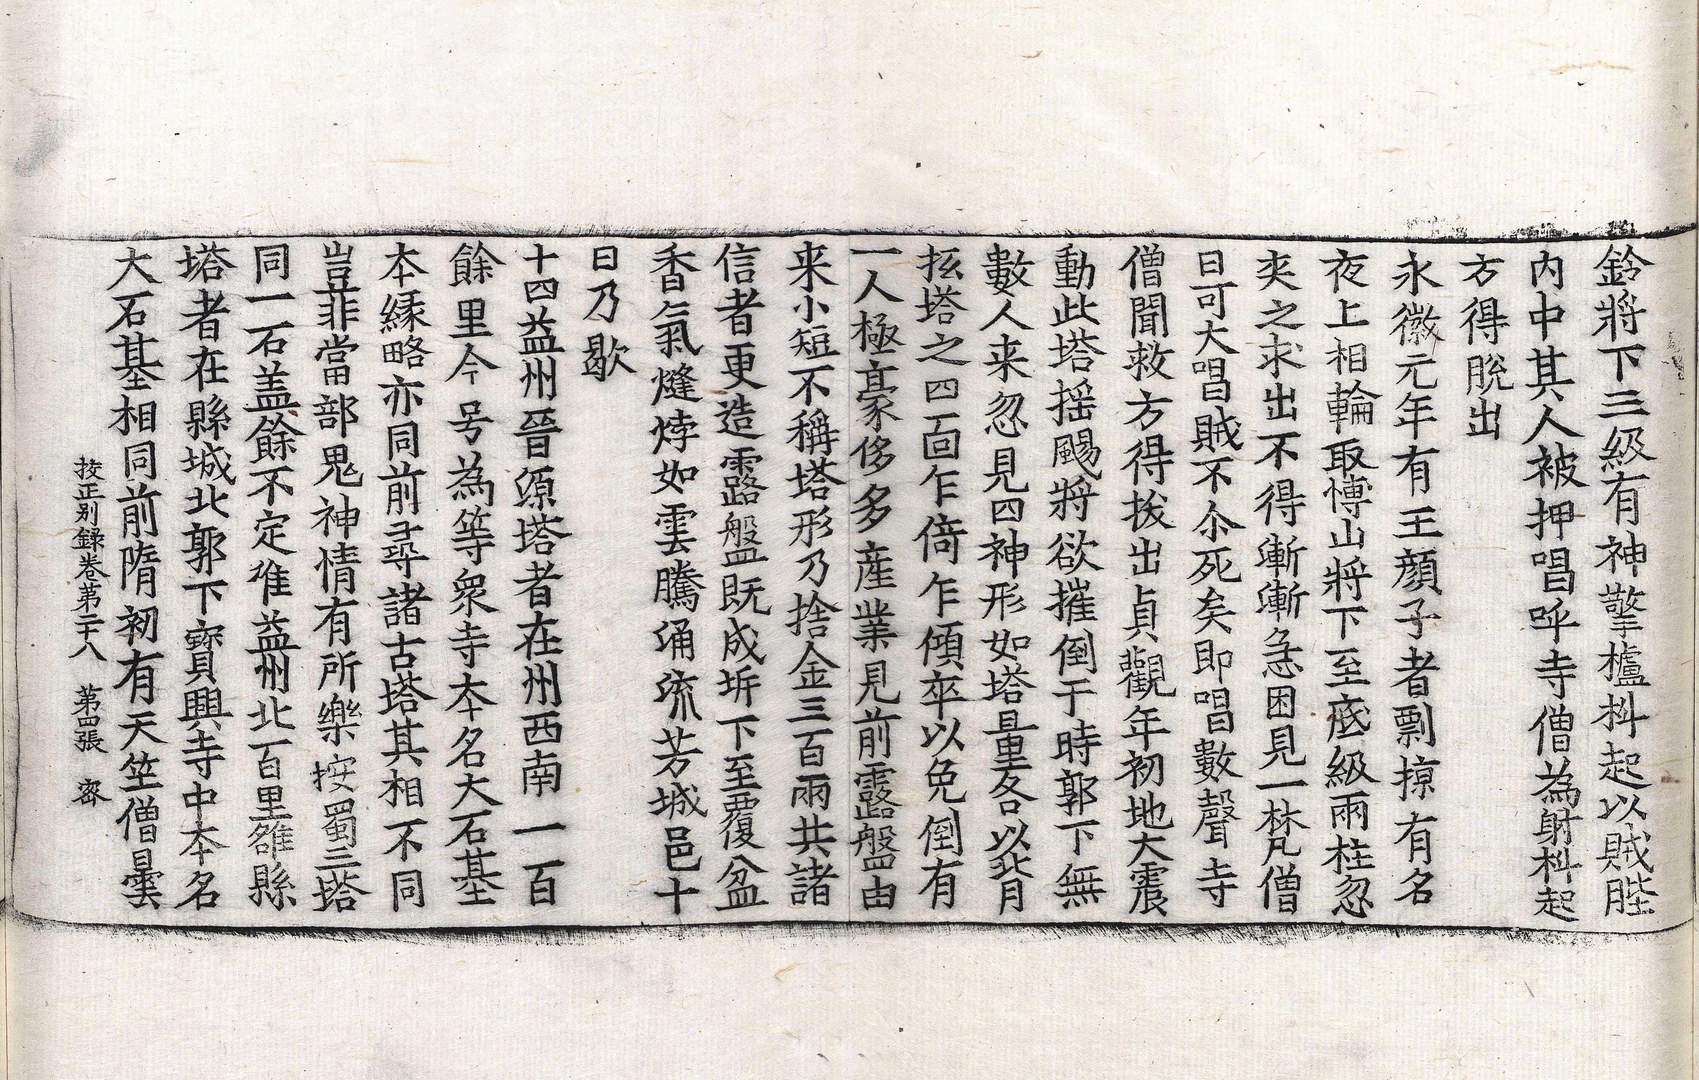 鈴將下三級有神擎櫨枓起以賊䏶
內中其人被押唱呼寺僧為射枓起
方得脫出
永徽元年有王顏子者剽掠有名
夜上相輪取博山將下至底級兩柱忽
夾之求出不得漸漸急困見一梵僧
曰可大唱賊不尒死矣即唱數聲寺
僧聞救方得拔出貞觀年初地大震
動此塔搖颺將欲摧倒于時郭下無
數人来忽見四神形如塔量各以背
抎塔之四面乍倚乍傾卒以免倒有
一人極豪侈多產業見前露盤由
来小短不稱塔形乃捨金三百兩共諸
信者更造露盤既成坼下至覆盆
香氣熢㶿如雲騰涌流芳城邑十
日乃歇
十四益州晉源塔者在州西南一百
餘里今号為等衆寺本名大石基
本縁略亦同前尋諸古塔其相不同
豈非當部鬼神情有所樂按蜀三塔
同一石盖餘不定准益州北百里雒縣
塔者在縣城北郭下寶興寺中本名
大石基相同前隋初有天竺僧曇
挍正別録卷第二十八 第四張 宻